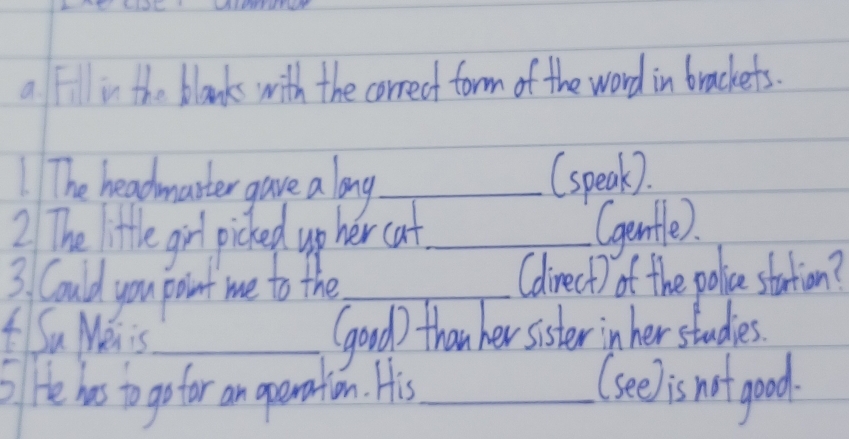 Exercise: Grammar
a. Fill in the blanks with the correct form of the word in brackets.
1. The headmaster gave a long __________ (speak).
2. The little girl picked up her cat __________ (gentle).
3. Could you point me to the __________ (direct) of the police station?
4. Su Mei is __________ (good) than her sister in her studies.
5. He has to go for an operation. His __________ (see) is not good.